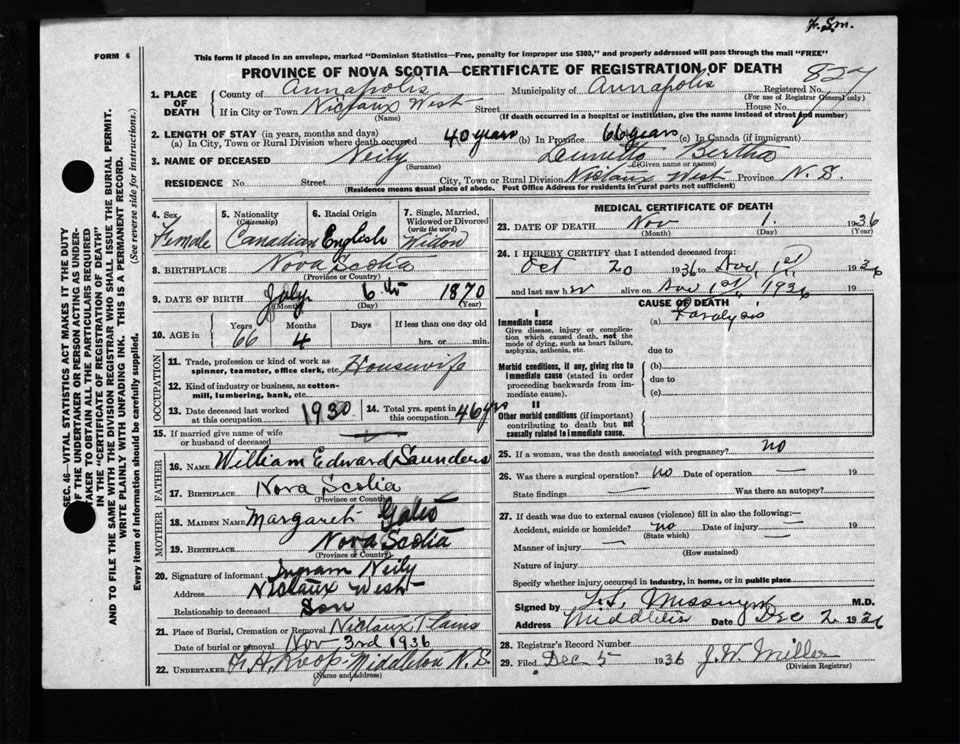 F. S. m.
FORM 6
This form if placed in an envelope, marked "Dominion Statistics—Free, penalty for improper use $300," and properly addressed will pass through the mail "FREE"
PROVINCE OF NOVA SCOTIA—CERTIFICATE OF REGISTRATION OF DEATH
827
1. PLACE OF DEATH
County of Annapolis Municipality of Annapolis Registered No.
(For use of Registrar General only)
If in City or Town Nictaux West Street House No.
(Name) (If death occurred in a hospital or institution, give the name instead of street and number)
2. LENGTH OF STAY (in years, months and days)
(a) In City, Town or Rural Division where death occurred 40 years (b) In Province 66 years (c) In Canada (if immigrant)
3. NAME OF DECEASED Neily Bertha
(Surname) (Given name or names)
RESIDENCE No Street City, Town or Rural Division Nictaux West Province N. S.
(Residence means usual place of abode. Post Office Address for residents in rural parts not sufficient)
4. Sex Female
5. Nationality (Citizenship) Canadian
6. Racial Origin English
7. Single, Married, Widowed or Divorced (write the word) Widow
8. BIRTHPLACE Nova Scotia
(Province or Country)
9. DATE OF BIRTH July 6th 1870
(Month) (Day) (Year)
10. AGE in Years 66 Months 4 Days If less than one day old hrs. or min.
OCCUPATION
11. Trade, profession or kind of work as spinner, teamster, office clerk, etc. Housewife
12. Kind of industry or business, as cotton-mill, lumbering, bank, etc.
13. Date deceased last worked at this occupation 1930
14. Total yrs. spent in this occupation 46 yrs
15. If married give name of wife or husband of deceased
FATHER
16. NAME William Edward Saunders
17. BIRTHPLACE Nova Scotia
(Province or Country)
MOTHER
18. MAIDEN NAME Margaret Gates
19. BIRTHPLACE Nova Scotia
(Province or Country)
20. Signature of informant Ingram Neily
Address Nictaux West
Relationship to deceased Son
21. Place of Burial, Cremation or Removal Nictaux Plains
Date of burial or removal Nov 3rd 1936
22. UNDERTAKER Middleton N. S.
(Name and address)
MEDICAL CERTIFICATE OF DEATH
23. DATE OF DEATH Nov 1. 1936
(Month) (Day) (Year)
24. I HEREBY CERTIFY that I attended deceased from:
Oct 20 1936 to Nov. 1st 1936
and last saw her alive on Nov 1st 1936
CAUSE OF DEATH
I
Immediate cause (a) Paralysis
Give disease, injury or complication which caused death, not the mode of dying, such as heart failure, asphyxia, asthenia, etc.
due to
Morbid conditions, if any, giving rise to immediate cause (stated in order proceeding backwards from immediate cause). (b)
due to
(c)
II
Other morbid conditions (if important) contributing to death but not causally related to immediate cause.
25. If a woman, was the death associated with pregnancy? no
26. Was there a surgical operation? no Date of operation — 19
State findings — Was there an autopsy? —
27. If death was due to external causes (violence) fill in also the following:—
Accident, suicide or homicide? no Date of injury — 19
(State which)
Manner of injury —
(How sustained)
Nature of injury
Specify whether injury occurred in industry, in home, or in public place
Signed by M.D.
Address Middleton Date Dec 2 1936
28. Registrar's Record Number
29. Filed Dec 5 1936 J. W. Miller
(Division Registrar)
SEC. 46—VITAL STATISTICS ACT MAKES IT THE DUTY
OF THE UNDERTAKER OR PERSON ACTING AS UNDER-
TAKER TO OBTAIN ALL THE PARTICULARS REQUIRED
IN THE "CERTIFICATE OF REGISTRATION OF DEATH"
AND TO FILE THE SAME WITH THE DIVISION REGISTRAR WHO SHALL ISSUE THE BURIAL PERMIT.
WRITE PLAINLY WITH UNFADING INK. THIS IS A PERMANENT RECORD.
Every item of information should be carefully supplied. (See reverse side for instructions.)